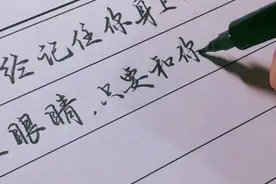 记住你身
眼睛,只要和你